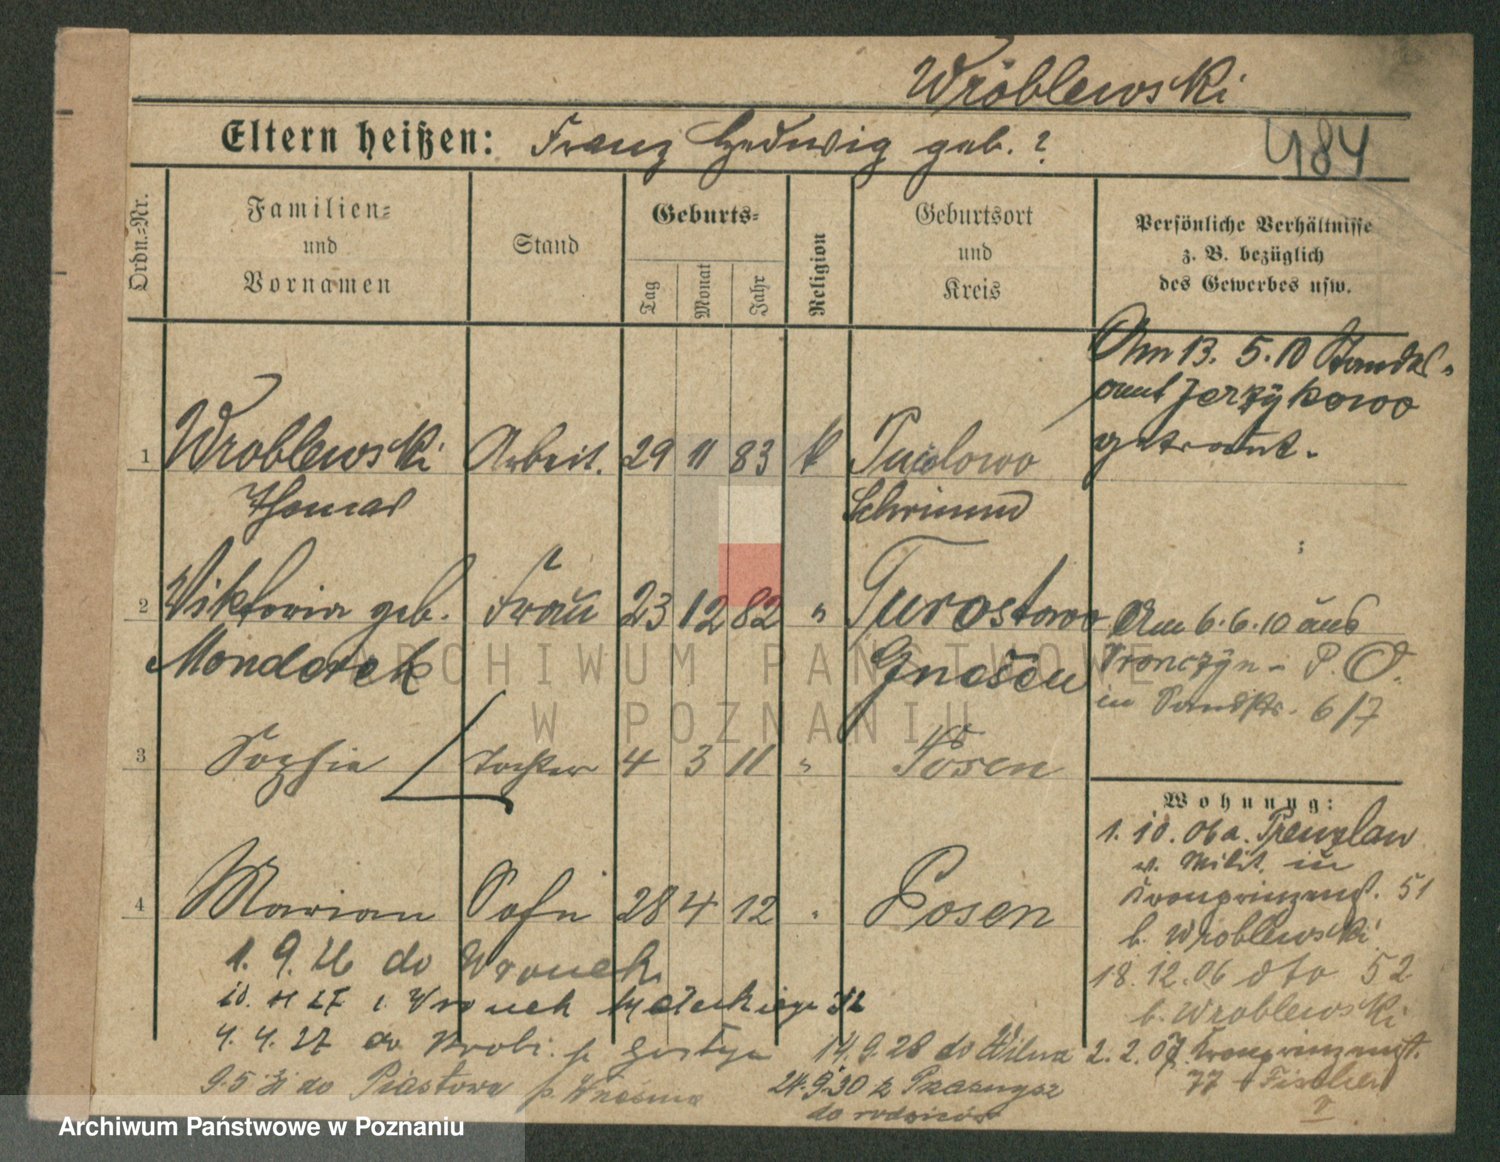 Wróblewski
Eltern heißen: Franz Hedwig geb. ?
484
Ordn.-Nr.
Familien-
und
Vornamen
Stand
Geburts-
Tag
Monat
Jahr
Religion
Geburtsort
und
Kreis
Persönliche Verhältnisse
z. B. bezüglich
des Gewerbes usw.
Am 13. 5. 10 Standes-
amt Jerzykowo
getraut.
1 Wroblewski Arbeit. 29 11 83 k
Thomas Schrimm
2 Viktoria geb. Frau 23 12 82 " Turostowo
Mondorek Gnesen
Am 6. 6. 10 aus
Wronczyn - P. O.
in 6/7
3 Sophie Tochter 4 3 11 " Posen
4 Marian Sohn 28 4 12 " Posen
Wohnung:
1. 10. 06 a. Prenzlau
v. Milit. in
Kronprinzenst. 51
b. Wroblewski
18. 12. 06 dto 52
b. Wroblewski
2. 2. 07 Kronprinzenst.
77 b. Fischer
1. 9. 26 do Wronek
10. 11 27 z Wronek Małeckiego 32
4. 4. 27 do Krobi p. Gostyn
9. 5 31 do Piastowa p. Września
14. 9. 28 do Wilna
24. 9. 30 z Przasnysz
do rodziców
ARCHIWUM PAŃSTWOWE
W POZNANIU
Archiwum Państwowe w Poznaniu